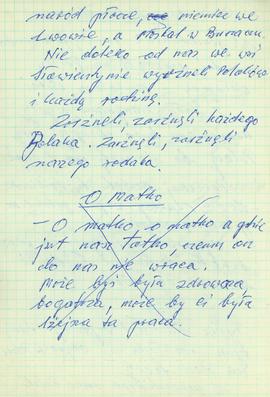 naród płacze, niemiec we
Lwowie, a Moskal w
Nie daleko od nas we wsi
Sławentynie wyrżneli Polaków
i każdą rodzinę.
Zarżneli, zarżneli każdego
Polaka. Zarżnęli, zarżnęli
naszego rodaka.
O Matko
- O matko, o matko a gdzie
jest nasz Tatko, czemu on
do nas nie wraca.
Może byś była zdrowsza,
bogatsza, może by ci była
lżejsza ta praca.